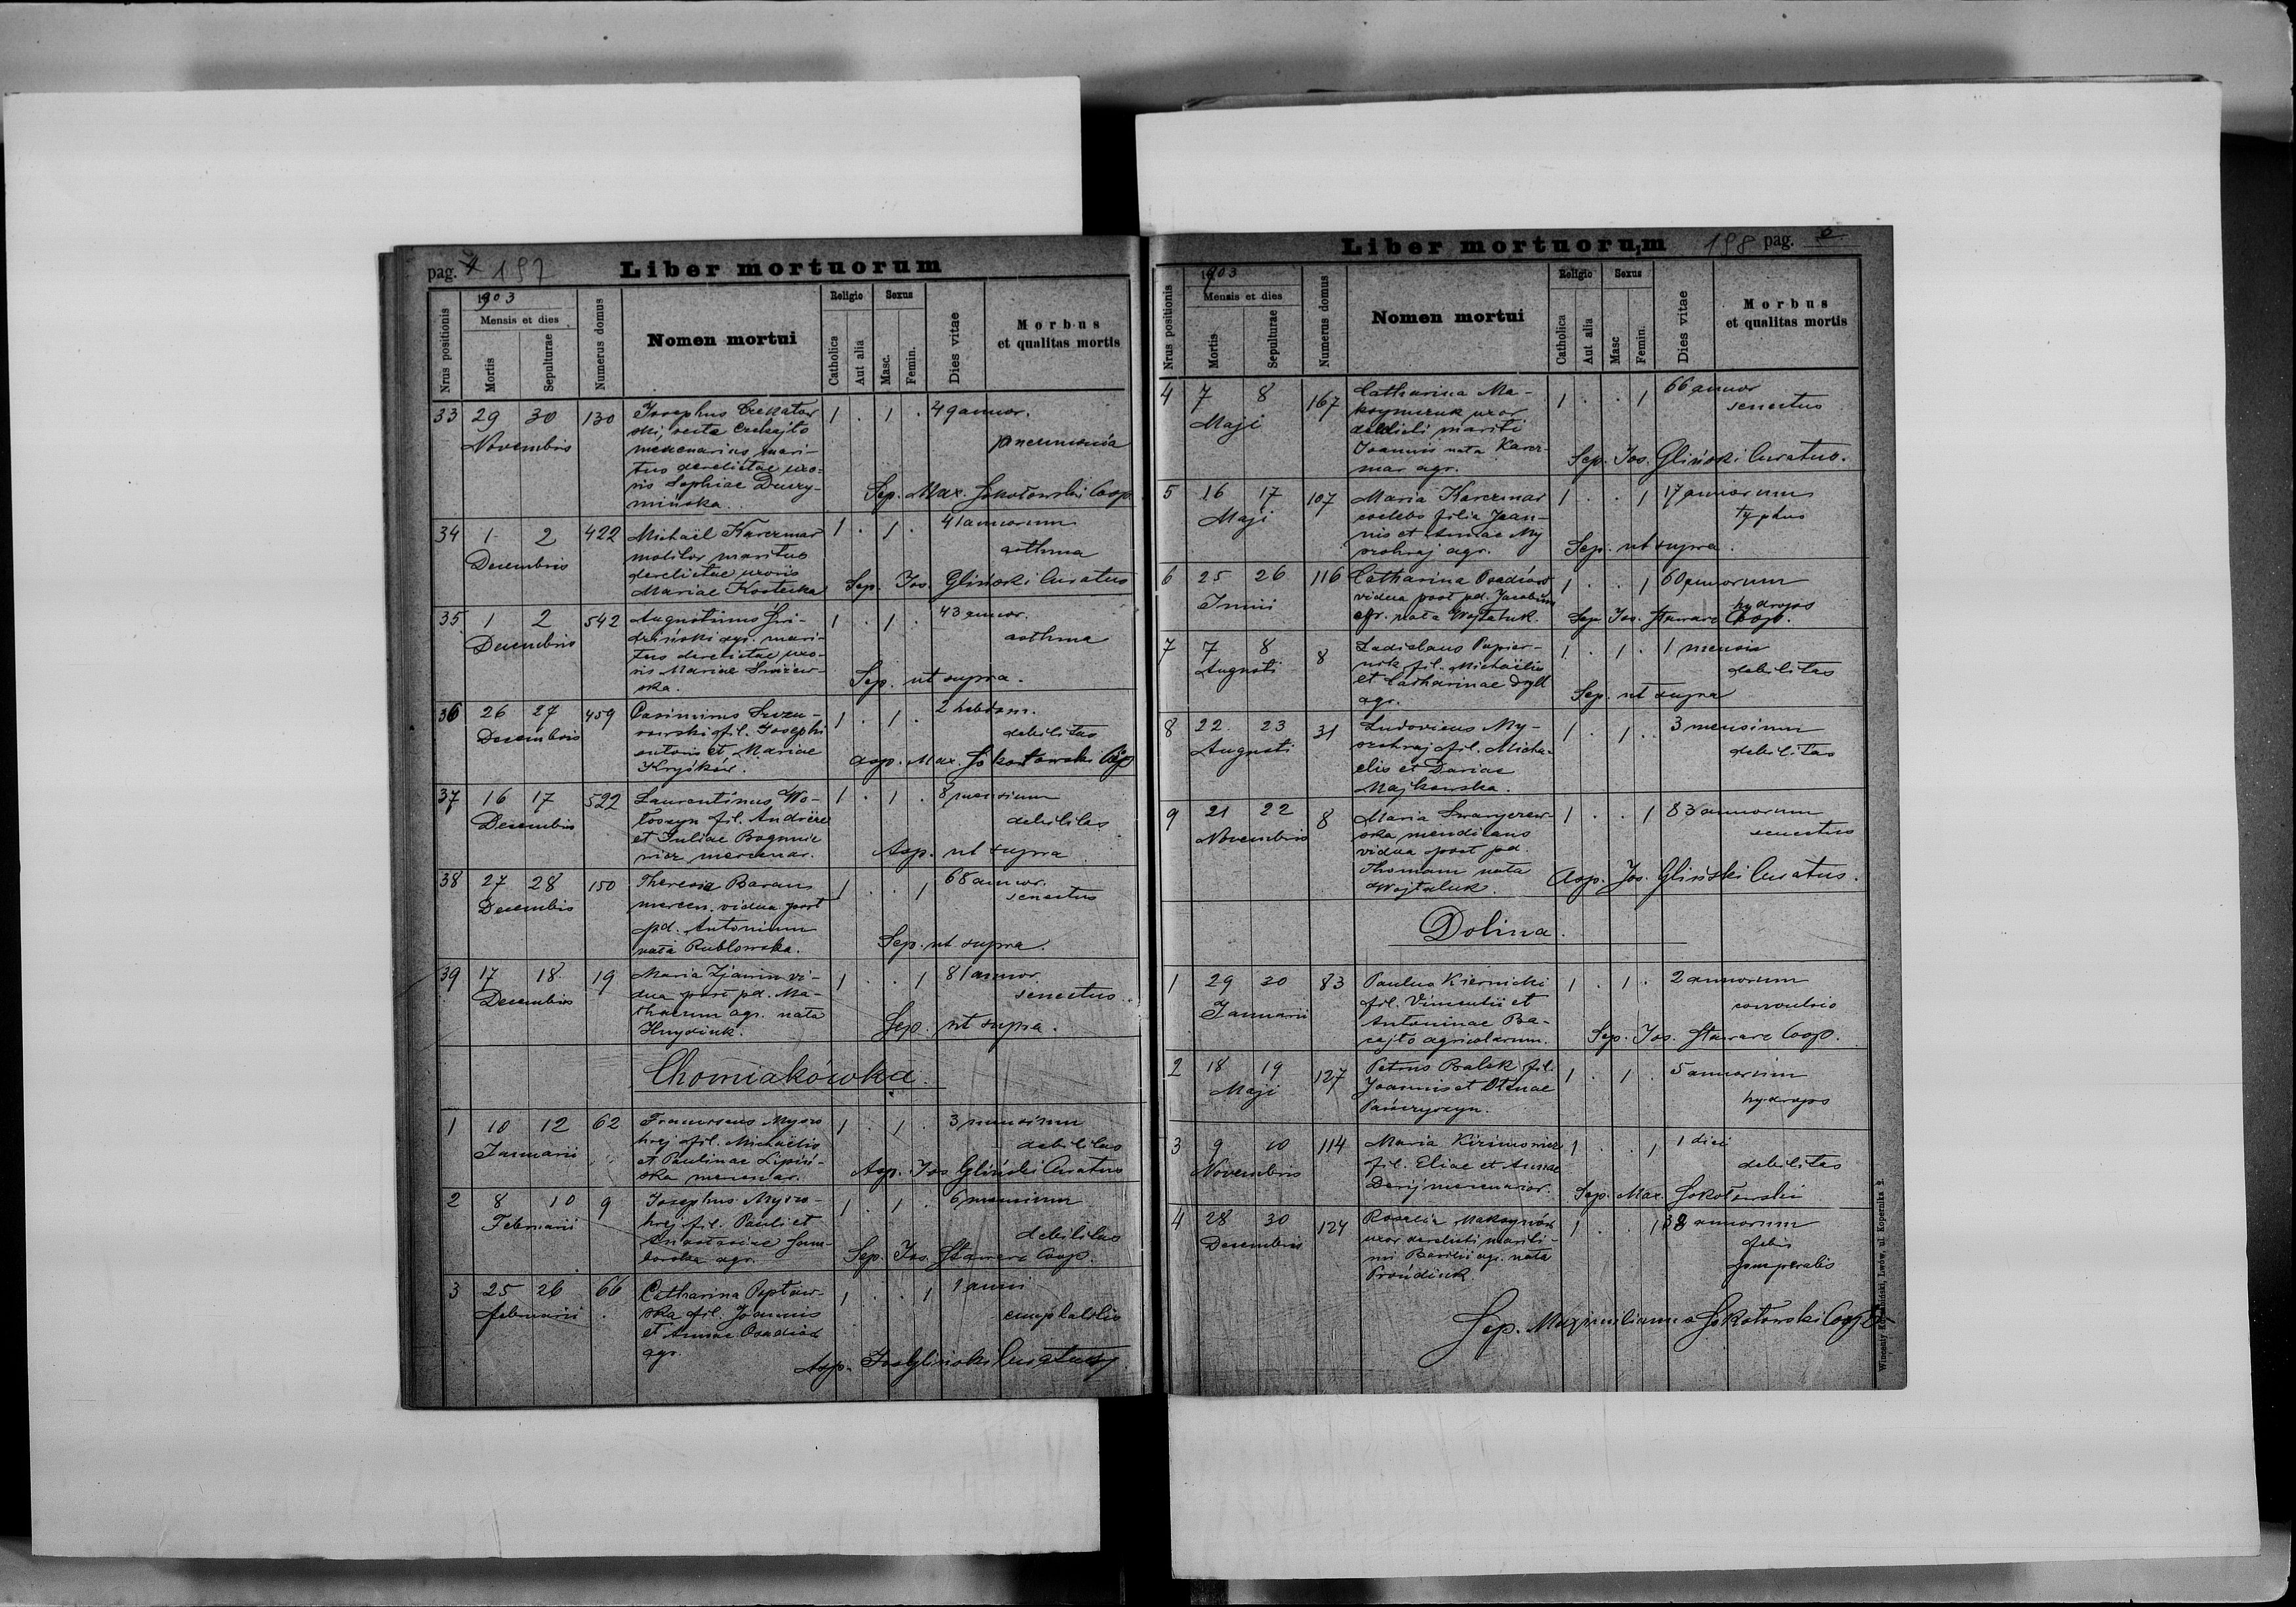 pag. 197 Liber mortuorum
1903
Nrus positionis
Mensis et dies
Mortis
Sepulturae
Numerus domus
Nomen mortui
Religio
Catholica
Aut alia
Sexus
Masc.
Femin.
Dies vitae
Morbus
et qualitas mortis
33 29 30 130 Josephus Czekatow 1 . 1 . 49 annor.
Novembris ski, recte Czekajło
mercenarius, mari- pneumonia
tus derelictae uxo-
ris Sophiae Duczy- Sep. Max. Sokołowski Coop.
mińska.
34 1 2 422 Michaël Karczmar 1 . 1 . 41 annorum
Decembris molitor maritus asthma
derelictae uxoris
Mariae Kostecka Sep. Jos. Gliński Curatus
35 1 2 542 Augustinus 1 . 1 . 43 annor.
Decembris agr. mari- asthma
tus derelictae uxo-
ris Mariae
ska. Sep. ut supra.
36 26 27 459 Casimirus 1 . 1 . 2 hebdom.
Decembris fil. Josephi debilitas
sutoris et Mariae
Kryśków. Asp. Max. Sokołowski Coop
37 16 17 522 Laurentinus Wo- 1 . 1 . 8 mensium
Decembris łoszyn fil. Andreae debilitas
et Juliae
mercenar. Asp. ut supra
38 27 28 150 Theresia Baran 1 . . 1 68 annor.
Decembris mercen. vidua post senectus
pd. Antonium
nata Rublowska. Sep. ut supra.
39 17 18 19 Maria vi- 1 . . 1 81 annor
Decembris dua post pd. Ma- senectus
thaeum agr. nata
Hnydiuk. Sep. ut supra.
Chomiakówka.
1 10 12 62 Franciscus Myszo 1 . 1 . 3 mensium
Januarii hrej fil. Michaëlis debilitas
et Paulinae Lipiń-
ska mercenar. Asp. Jos Gliński Curatus
2 8 10 9 Josephus Myszo- 1 . 1 . 6 mensium
Februarii hrej fil. Pauli et
Anastasiae Sam- debilitas
borska agr. Sep. Jos. Stawarz Coop.
3 25 26 66 Catharina Popław- 1 . . 1 1 anni
Februarii ska fil. Joannis
et Annae Osadiad
agr. Asp. Jos Gliński Curatus
Liber mortuorum 198 pag.
1903
Nrus positionis
Mensis et dies
Mortis
Sepulturae
Numerus domus
Nomen mortui
Religio
Catholica
Aut alia
Sexus
Masc
Femin.
Dies vitae
Morbus
et qualitas mortis
4 7 8 167 Catharina Ma- 1 . . 1 66 annor
Maji ksymczuk uxor senectus
derelicti mariti
Joannis nata Karcz- Sep. Jos. Gliński Curatus.
mar agr.
5 16 17 107 Maria Karczmar 1 . . 1 17 annorum
Maji coelebs filia Joan- typhus
nis et Annae My
szohrej agr. Sep. ut supra.
6 25 26 116 Catharina 1 . . 1 60 annorum
Junii vidua post pd. Jacobum hydrops
agr. nata Wojtaluk. Sep. Jos. Stawarz Coop.
7 7 8 8 Ladislaus Papier- 1 . 1 . 1 mensis
Augusti nik fil. Michaëlis debilitas
et Catharinae Dyll
agr. Sep. ut supra
8 22 23 31 Ludovicus My- 1 . 1 . 3 mensium
Augusti szohrej fil. Micha- debilitas
elis et Dariae
Majkowska.
9 21 22 8 Maria 1 . . 1 83 annorum
Novembris ska mendicans senectus
vidua post pd.
Thomam nata Asp. Jos. Gliński Curatus.
Wojtaluk.
Dolina.
1 29 30 83 Paulus Kiernicki 1 . 1 . 2 annorum
Januarii fil. Vincentii et convulsio
Antoninae Ba-
agricolarum. Sep. Jos. Stawarz Coop.
2 18 19 127 Petrus Balak fil. 1 . 1 . 5 annorum
Maji Joannis et Olenae hydrops
Pańczyszyn.
3 9 10 114 Maria 1 . . 1 1 diei
Novembris fil. Eliae et Annae debilitas
mercenarior. Sep. Max. Sokołowski
4 28 30 124 Rosalia Maksymów 1 . . 1 38 annorum
Decembris uxor derelicti mariti febris
Basilii agr. nata puerperalis
Prońdiuk.
Sep. Maximilianus Sokołowski Coop.
Wincenty Kuczabiński, Lwów, ul. Kopernika 2.